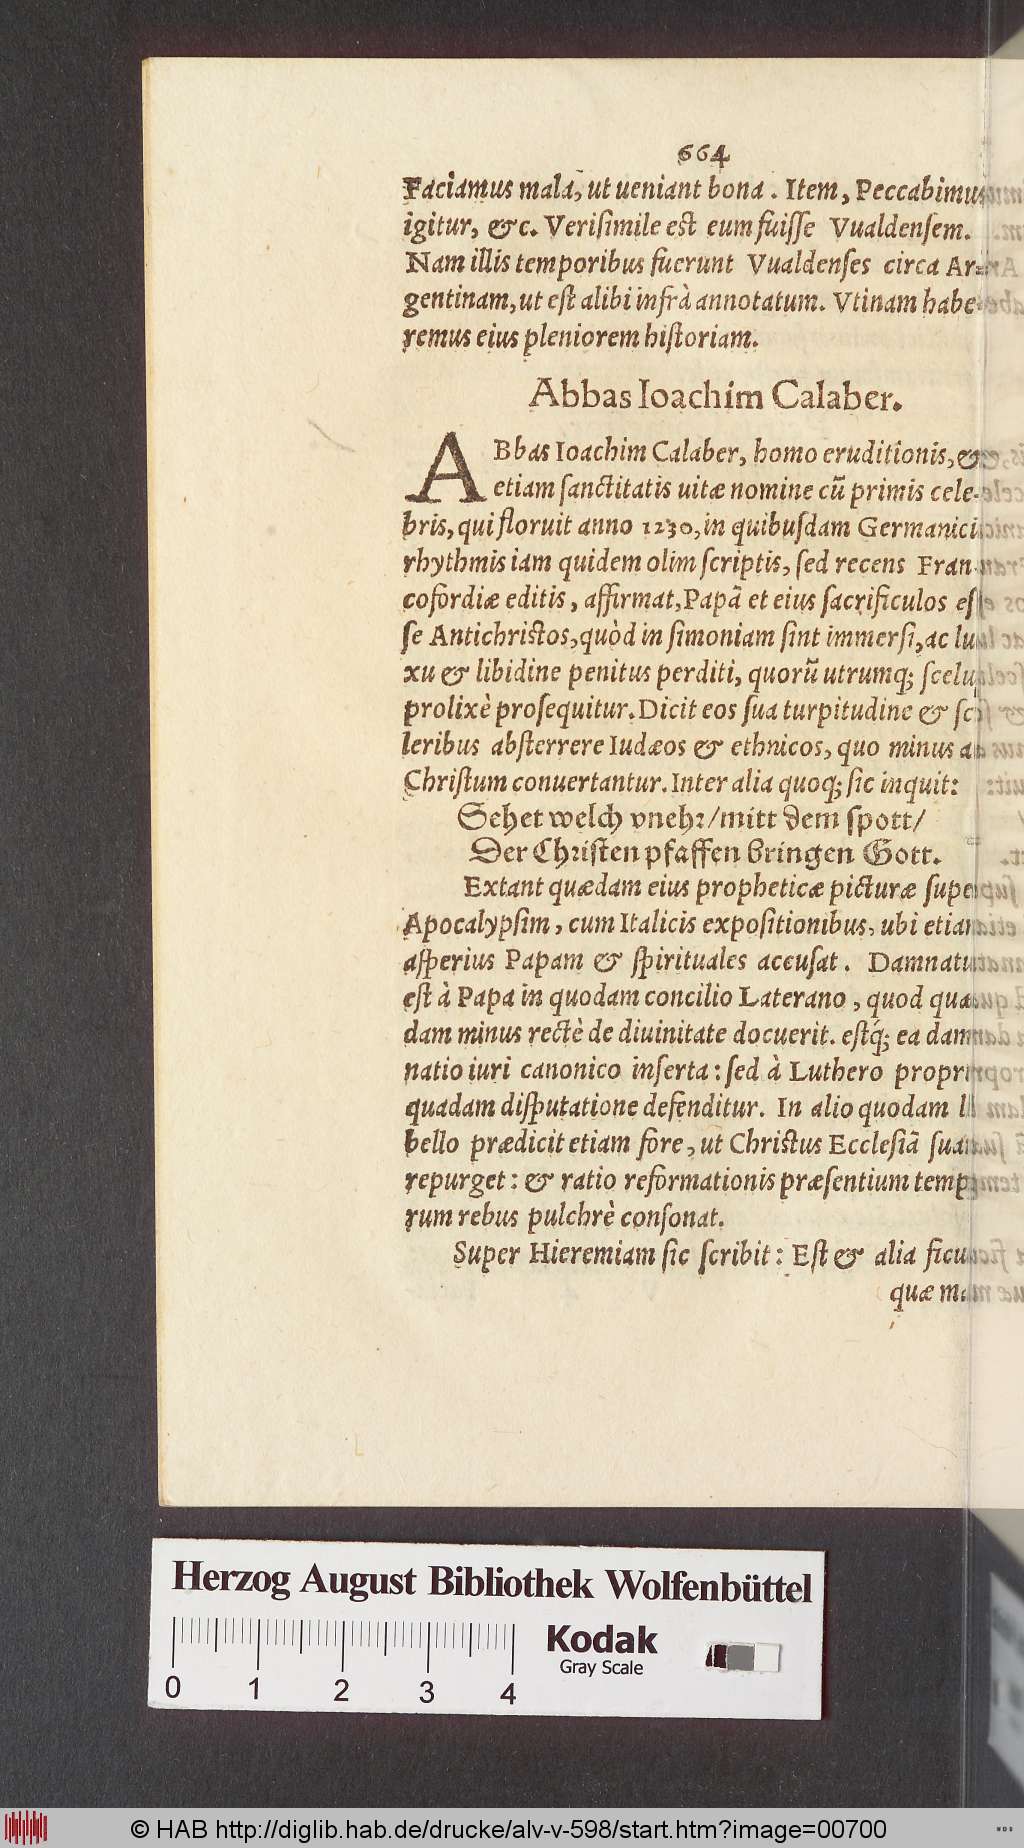 664
Faciamus mala, ut ueniant bona. Item, Peccabimus
igitur, &c. Verisimile est eum fuisse Vualdensem.
Nam illis temporibus fuerunt Vualdenses circa Ar-
gentinam, ut est alibi infrà annotatum. Vtinam habe-
remus eius pleniorem historiam.
Abbas Ioachim Calaber.
ABbas Ioachim Calaber, homo eruditionis, &
etiam sanctitatis uitæ nomine cũ primis cele-
bris, qui floruit anno 1230, in quibusdam Germanicis
rhythmis iam quidem olim scriptis, sed recens Fran-
cofordiæ editis, affirmat, Papã et eius sacrificulos es-
se Antichristos, quòd in simoniam sint immersi, ac lu-
xu & libidine penitus perditi, quorũ utrumq; scelus
prolixè prosequitur. Dicit eos sua turpitudine & sce-
leribus absterrere Iudæos & ethnicos, quo minus ad
Christum conuertantur. Inter alia quoq; sic inquit:
Sehet welch vnehr/mitt dem spott/
Der Christen pfaffen bringen Gott.
Extant quædam eius propheticæ picturæ super
Apocalypsim, cum Italicis expositionibus, ubi etiam
asperius Papam & spirituales accusat. Damnatus
est à Papa in quodam concilio Laterano, quod quæ-
dam minus rectè de diuinitate docuerit. estq́; ea dam-
natio iuri canonico inserta: sed à Luthero propria
quadam disputatione defenditur. In alio quodam li-
bello prædicit etiam fore, ut Christus Ecclesiã suam
repurget: & ratio reformationis præsentium tempo-
rum rebus pulchrè consonat.
Super Hieremiam sic scribit: Est & alia ficus
quæ
Herzog August Bibliothek Wolfenbüttel
Kodak
Gray Scale
0 1 2 3 4
© HAB http://diglib.hab.de/drucke/alv-v-598/start.htm?image=00700